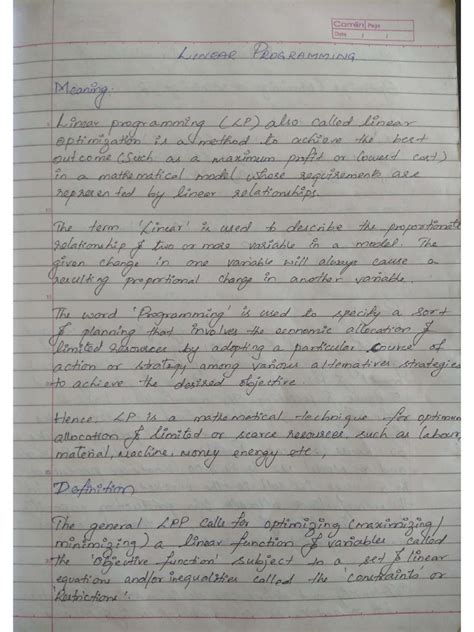 Camlin Page
Date / /
LINEAR PROGRAMMING
Meaning.
Linear programming (LP) also called linear
optimization is a method to achieve the best
outcome (such as a maximum profit or lowest cost)
in a mathematical model whose requirements are
represented by linear relationships.
The term 'Linear' is used to describe the proportionate
relationship of two or more variable in a model. The
given change in one variable will always cause a
resulting proportional change in another variable.
The word 'Programming' is used to specify a sort
of planning that involves the economic allocation of
limited resources by adopting a particular cource of
action or strategy among various alternatives strategies
to achieve the desired objective.
Hence, LP is a mathematical technique for optimum
allocation of limited or scarce resources, such as labour,
material, Machine, Money energy etc.,
Definition
The general LPP calls for optimizing (maximizing/
minimizing) a linear function of variables called
the 'Objective function' subject to a set of linear
equations and/or inequalities called the 'constraints' or
'Restrictions'.